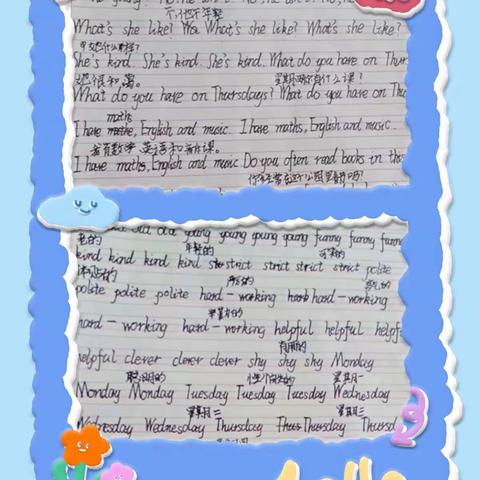 What's she like? Wa What's she like? What's she like?
She's kind. She's kind. She's kind. What do you have on Thur
她很和蔼。 星期四你有什么课?
What do you have on Thursdays? What do you have on Thu
maths
I have mathe, English and music. I have maths, English and music.
我有数学 英语和音乐课。
I have maths, English and music Do you often read books in this
old old young young young young funny funny funny
老的 年轻的 可笑的
kind kind kind kind st strict strict strict strict polite
体贴的 严厉的 有礼貌的
polite polite polite hard-working hard hard-working
辛勤的
hard-working hard-working helpful helpful helpf
有用的
helpful clever clever clever shy shy shy Monday
聪明的 星期一
Monday Monday Tuesday Tuesday Tuesday Wednesday
星期二 星期三
Wednesday Wednesday Thursday Thurs Thursday Thursd